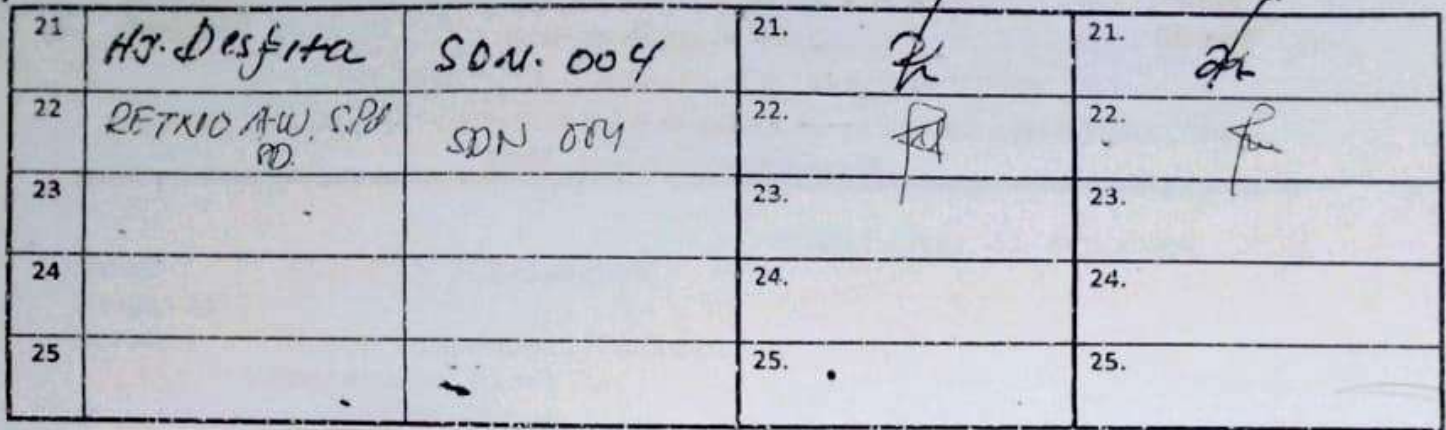 21 Hj. Desfita SDN. 004 21. 21.
22 RETNO A.W. S.Pd SDN 004 22. 22.
PD.
23 23. 23.
24 24. 24.
25 25. 25.